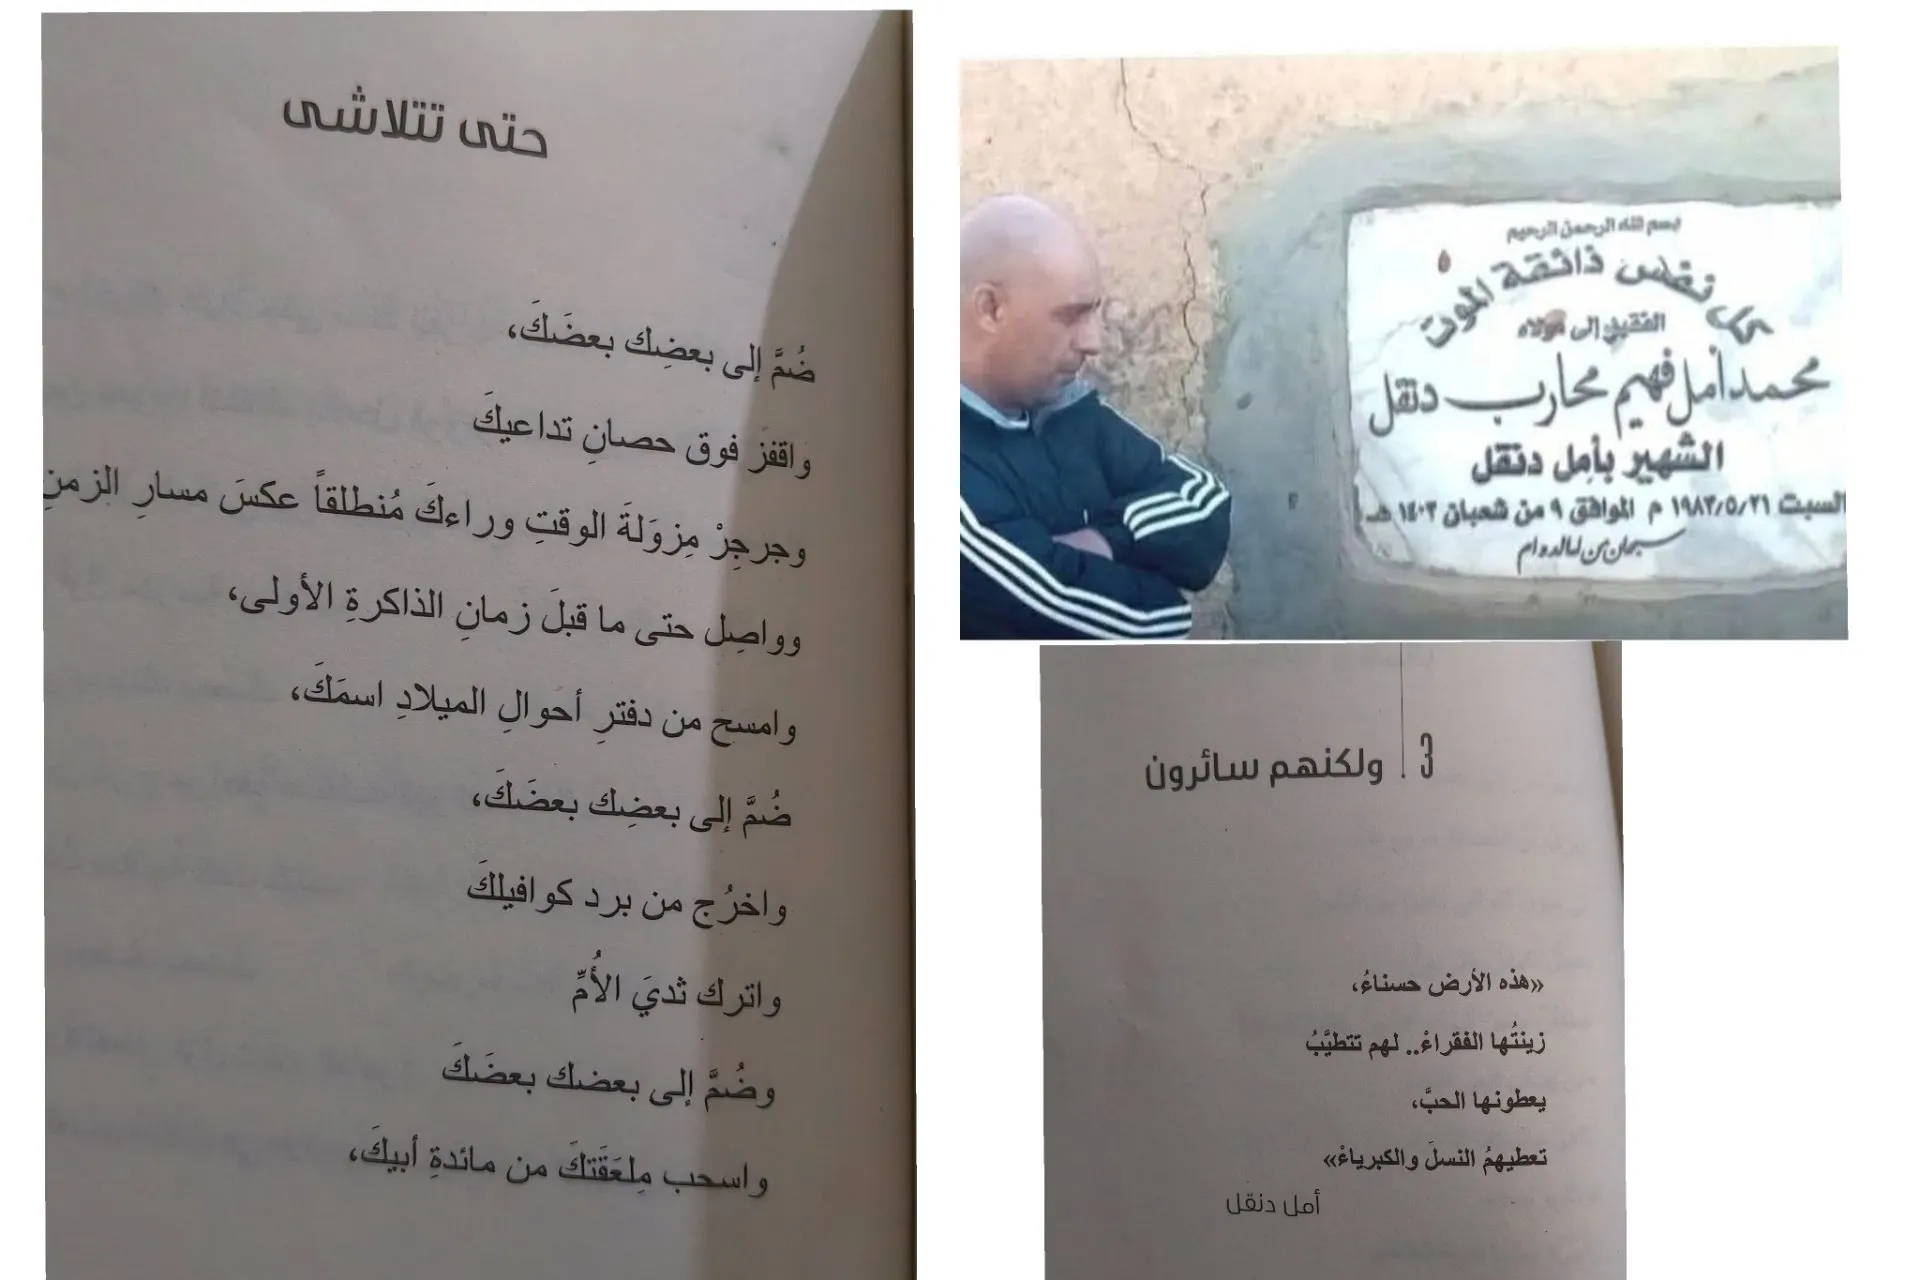 حتى تتلاشى
ضُمَّ إلى بعضِك بعضَكَ،
واقفز فوق حصانِ تداعيكَ
وجرجِرْ مِزوَلةَ الوقتِ وراءكَ مُنطلقاً عكسَ مسارِ الزمنِ
وواصِل حتى ما قبلَ زمانِ الذاكرةِ الأولى،
وامسح من دفترِ أحوالِ الميلادِ اسمَكَ،
ضُمَّ إلى بعضِك بعضَكَ،
واخرُج من برد كوافيلكَ
واترك ثديَ الأُمِّ
وضُمَّ إلى بعضك بعضَكَ
واسحب مِلعَقَتكَ من مائدةِ أبيكَ،
بسم الله الرحمن الرحيم
كل نفس ذائقة الموت
الفقير إلى مولاه
محمد أمل فهيم محارب دنقل
الشهير بأمل دنقل
السبت ١٩٨٣/٥/٢١ م الموافق ٩ من شعبان ١٤٠٣ هـ
سبحان من له الدوام
3 . ولكنهم سائرون
«هذه الأرض حسناءُ،
زينتُها الفقراءُ.. لهم تتطيَّبُ
يعطونها الحبَّ،
تعطيهمُ النسلَ والكبرياءْ»
أمل دنقل